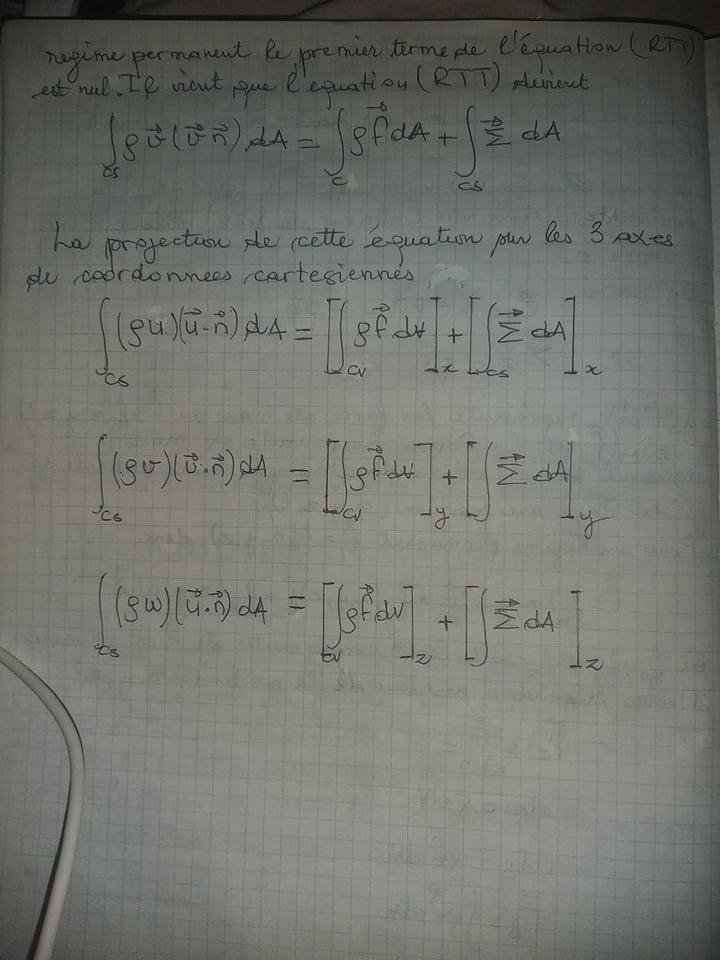 regime permanent le premier terme de l'équation (RTT)
est nul. Il vient que l'equation (RTT) devient
∫_cs ρ v⃗ (v⃗·n⃗) dA = ∫_c ρ f⃗ dA + ∫_cs Σ⃗ dA
La projection de cette équation sur les 3 axes
de coordonnees cartesiennes
∫_cs (ρu)(u⃗·n⃗) dA = [∫_cv ρ f⃗ d∀]_x + [∫_cs Σ⃗ dA]_x
∫_cs (ρv)(v⃗·n⃗) dA = [∫_cv ρ f⃗ d∀]_y + [∫ Σ⃗ dA]_y
∫_cs (ρw)(u⃗·n⃗) dA = [∫_cv ρ f⃗ dV]_z + [∫ Σ⃗ dA]_z